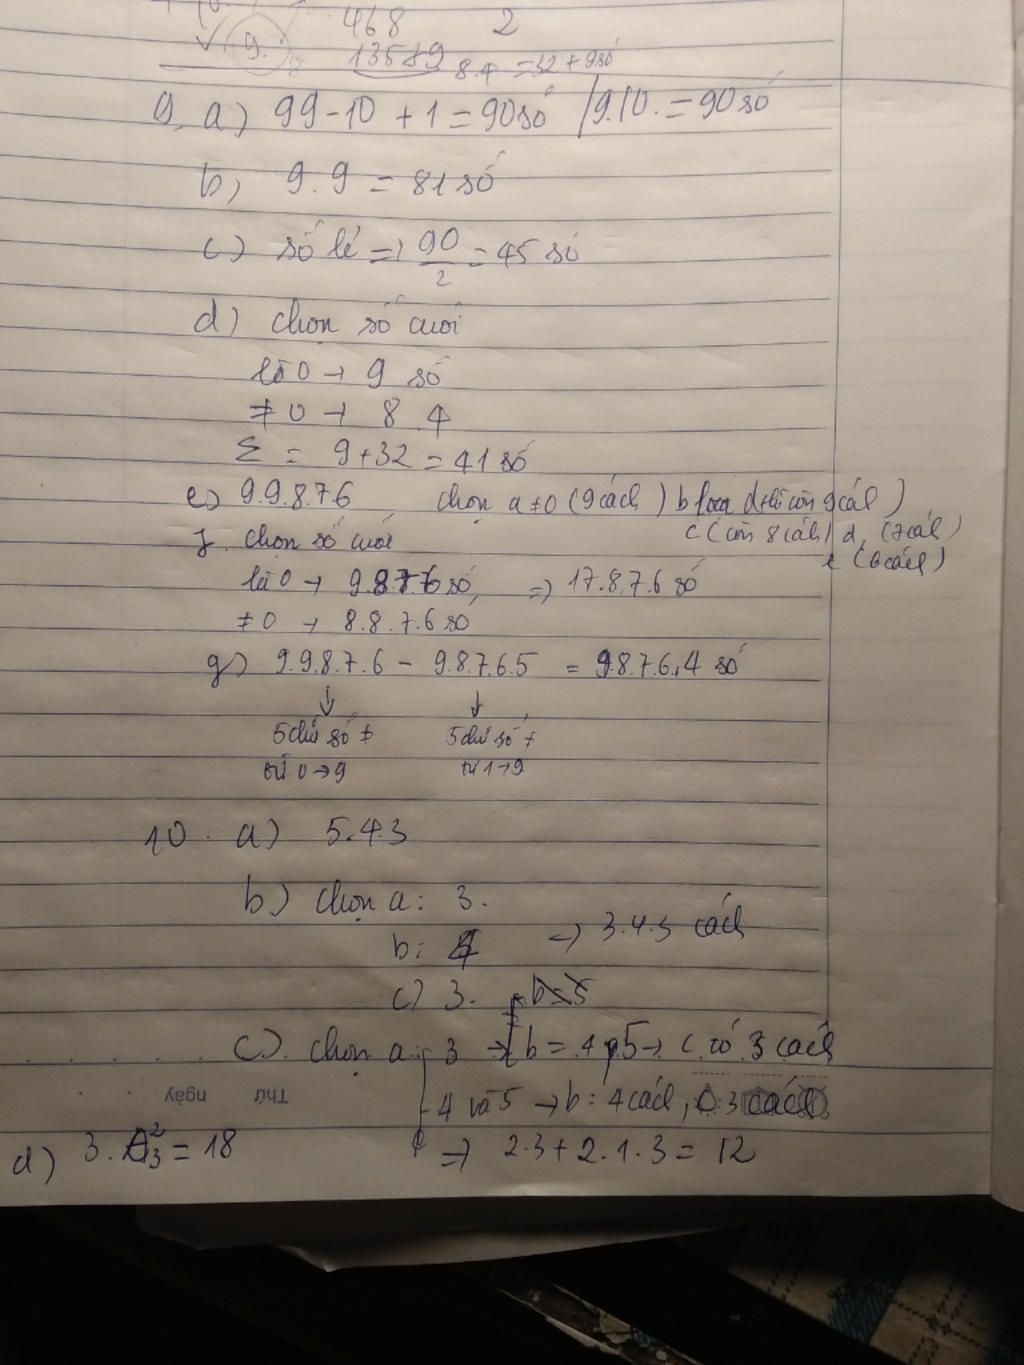 468 2
9. 13589 8.4 = 32 + 9 số
9, a) 99-10 + 1 = 90 số / 9.10. = 90 số
b, 9.9 = 81 số
c) số lẻ => 90/2 = 45 số
d) chọn số cuối
là 0 → 9 số
≠ 0 → 8.4
Σ = 9+32 = 41 số
e) 9.9.8.7.6 chọn a ≠ 0 (9 cách) b thì còn 9 cách)
c (còn 8 cách) d (7 cách)
e (6 cách)
f. chọn số cuối
là 0 → 9.8.7.6 số, => 17.8.7.6 số
≠ 0 → 8.8.7.6 số
g) 9.9.8.7.6 - 9.8.7.6.5 = 9.8.7.6.4 số
↓ ↓
5 chữ số ≠ 5 chữ số ≠
từ 0→9 từ 1→9
10. a) 5.4.3
b) chọn a: 3.
b: 4 => 3.4.3 cách
c) 3. b=5
c). chọn a: 3 → b = 4, 5 → c có 3 cách
4 và 5 → b: 4 cách, c: 3 cách
Thứ ngày
=> 2.3 + 2.1.3 = 12
d) 3. A²₃ = 18